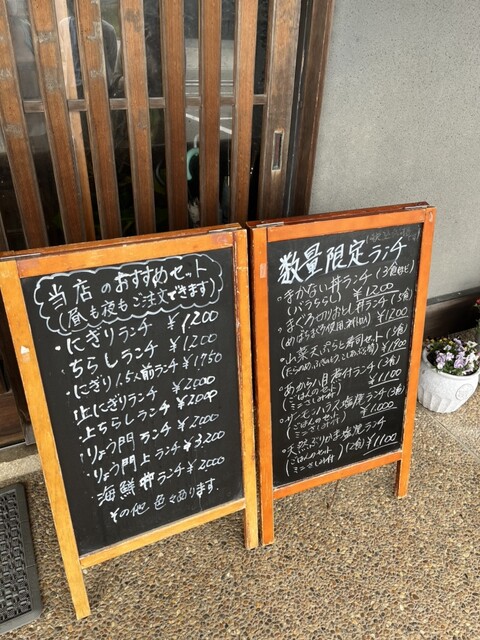 当店のおすすめセット
(昼も夜もご注文できます)
・にぎりランチ ¥1200
・ちらしランチ ¥1200
・にぎり1.5人前ランチ ¥1750
・上にぎりランチ ¥2000
・上ちらしランチ ¥2000
・りょう門ランチ ¥2000
・りょう門上ランチ ¥3200
・海鮮丼ランチ ¥2000
その他色々あります
数量限定ランチ
・まかない丼ランチ(3食ほど)
(バラちらし) ¥1200
・まぐろ切りおとし丼ランチ(5食)
(めばちまぐろ使用 ¥1200
・山菜天ぷらと寿司セット(5食)
¥1900
・あかうお煮付ランチ(3食)
(ごはんの セット) ¥1100
(ミニさしみ付)
・サーモンハラス塩焼ランチ(3食)
(ごはんのセット) ¥1000
(ミニさしみ付)
・天然ぶりかま塩焼ランチ
(ごはんのセット) (2食) ¥1100
(ミニさしみ付)